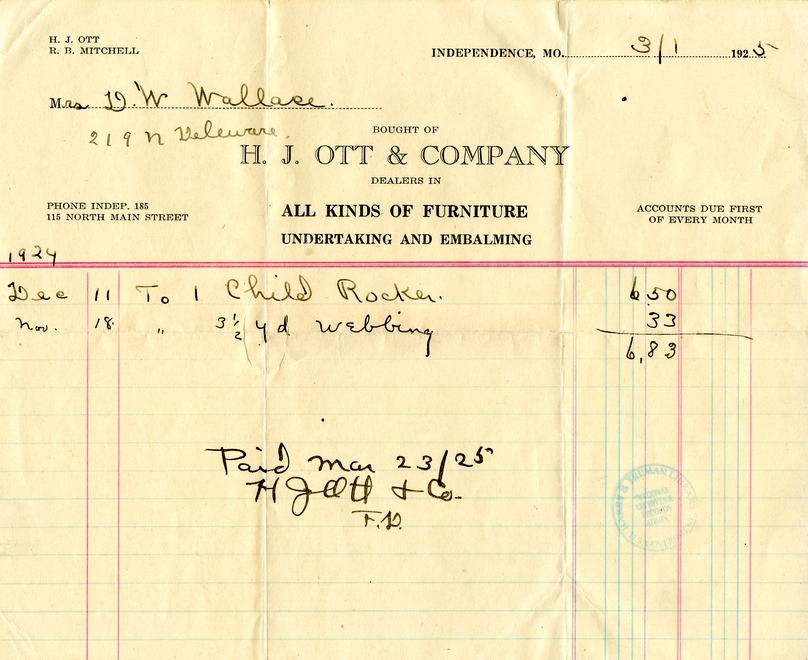 H. J. OTT
R. B. MITCHELL
INDEPENDENCE, MO. 3/1 1925
Mrs D. W Wallace.
219 N Deleware.
BOUGHT OF
H. J. OTT & COMPANY
DEALERS IN
PHONE INDEP. 185
115 NORTH MAIN STREET
ALL KINDS OF FURNITURE
UNDERTAKING AND EMBALMING
ACCOUNTS DUE FIRST
OF EVERY MONTH
1924
Dec 11 To 1 Child Rocker. 6 50
Nov. 18 " 3 1/2 yd Webbing 33
6,83
Paid Mar 23/25
H J Ott & Co.
F.D.
HARRY S TRUMAN LIBRARY
NATIONAL
ARCHIVES &
RECORDS